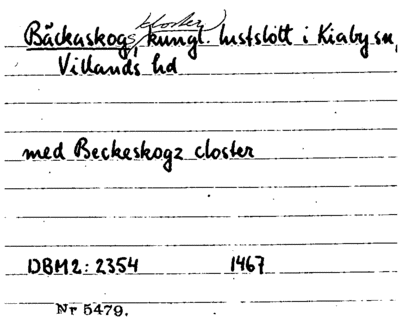 kloster
Bäckaskogs, kungl. lustslott i Kiaby sn,
Villands hd
med Beckeskogz closter
DBM2: 2354 1467
Nr 5479.